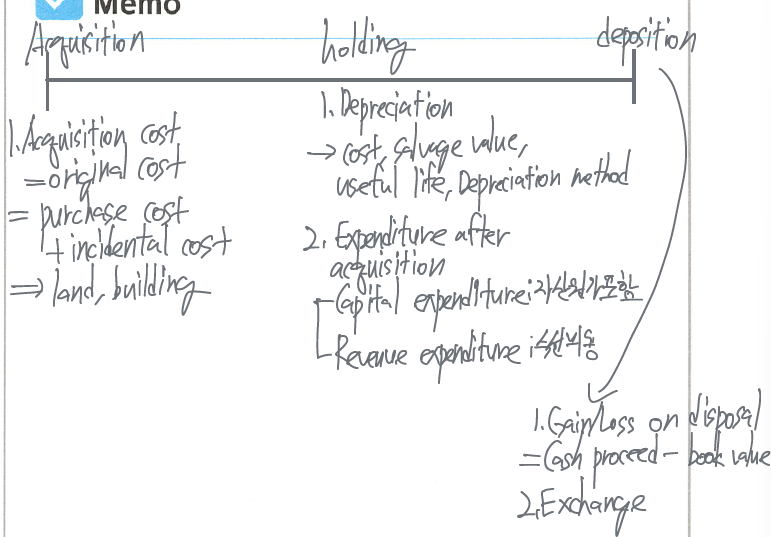 Memo
Acquisition holding deposition
1. Acquisition cost
= original cost
= purchase cost
+ incidental cost
⇒ land, building
1. Depreciation
→ cost, salvage value,
useful life, Depreciation method
2. Expenditure after
acquisition
Capital expenditure : 자산원가 포함
Revenue expenditure : 수선비용
1. Gain/Loss on disposal
= Cash proceed - book value
2. Exchange